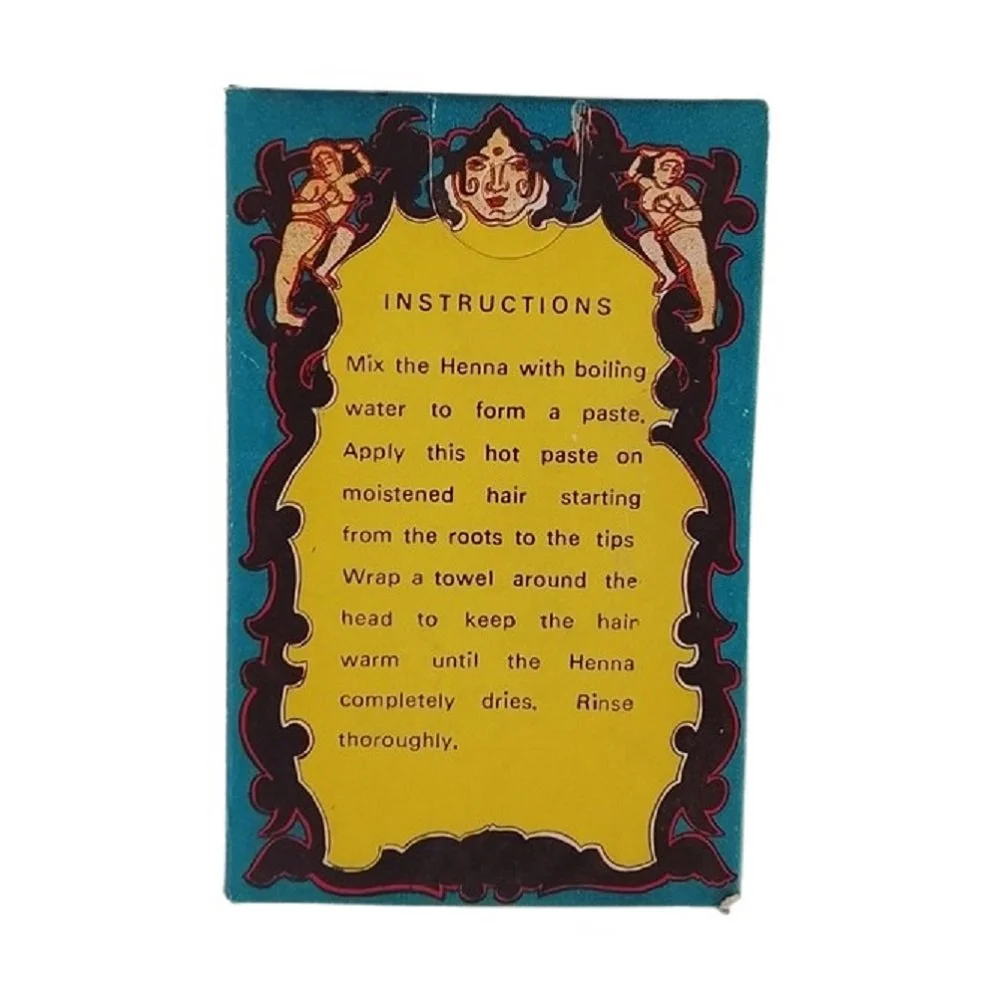 INSTRUCTIONS
Mix the Henna with boiling
water to form a paste.
Apply this hot paste on
moistened hair starting
from the roots to the tips
Wrap a towel around the
head to keep the hair
warm until the Henna
completely dries. Rinse
thoroughly.